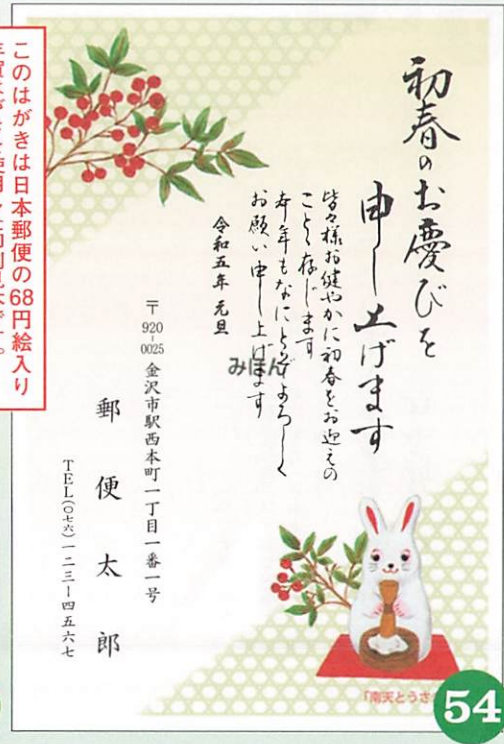 このはがきは日本郵便の68円絵入り
初春のお慶びを
申し上げます
皆々様お健やかに初春をお迎えの
ことと存じます
本年もなにとぞよろしく
お願い申し上げます
みほん
令和五年 元旦
〒920-0025 金沢市駅西本町一丁目一番一号
郵便太郎
TEL(〇七六)一二三ー四五六七
「南天とうさ
54